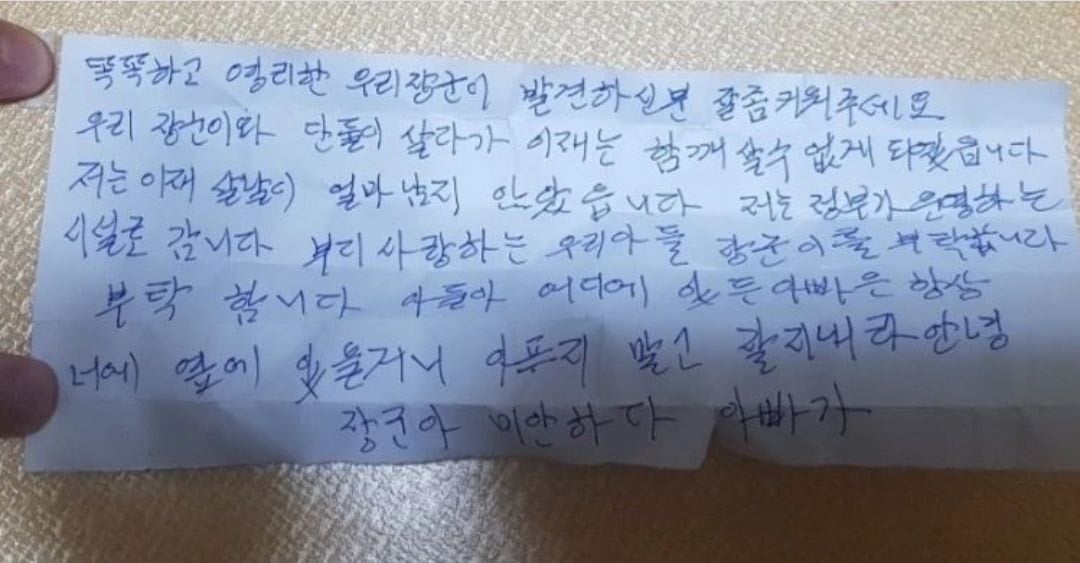 똑똑하고 영리한 우리장군이 발견하신분 잘좀키워주세요
우리 장군이와 단둘이 살다가 이재는 함깨 살수 없게 되었읍니다
저는 이재 살날이 얼마 남지 안았읍니다 저는 정부가 운영하는
시설로 갑니다 부디 사랑하는 우리아들 장군이를 부탁합니다
부탁 합니다 아들아 어디에 있든 아빠은 항상
너에 옆에 있을거니 아프지 말고 잘지내라 안녕
장군아 미안하다 아빠가